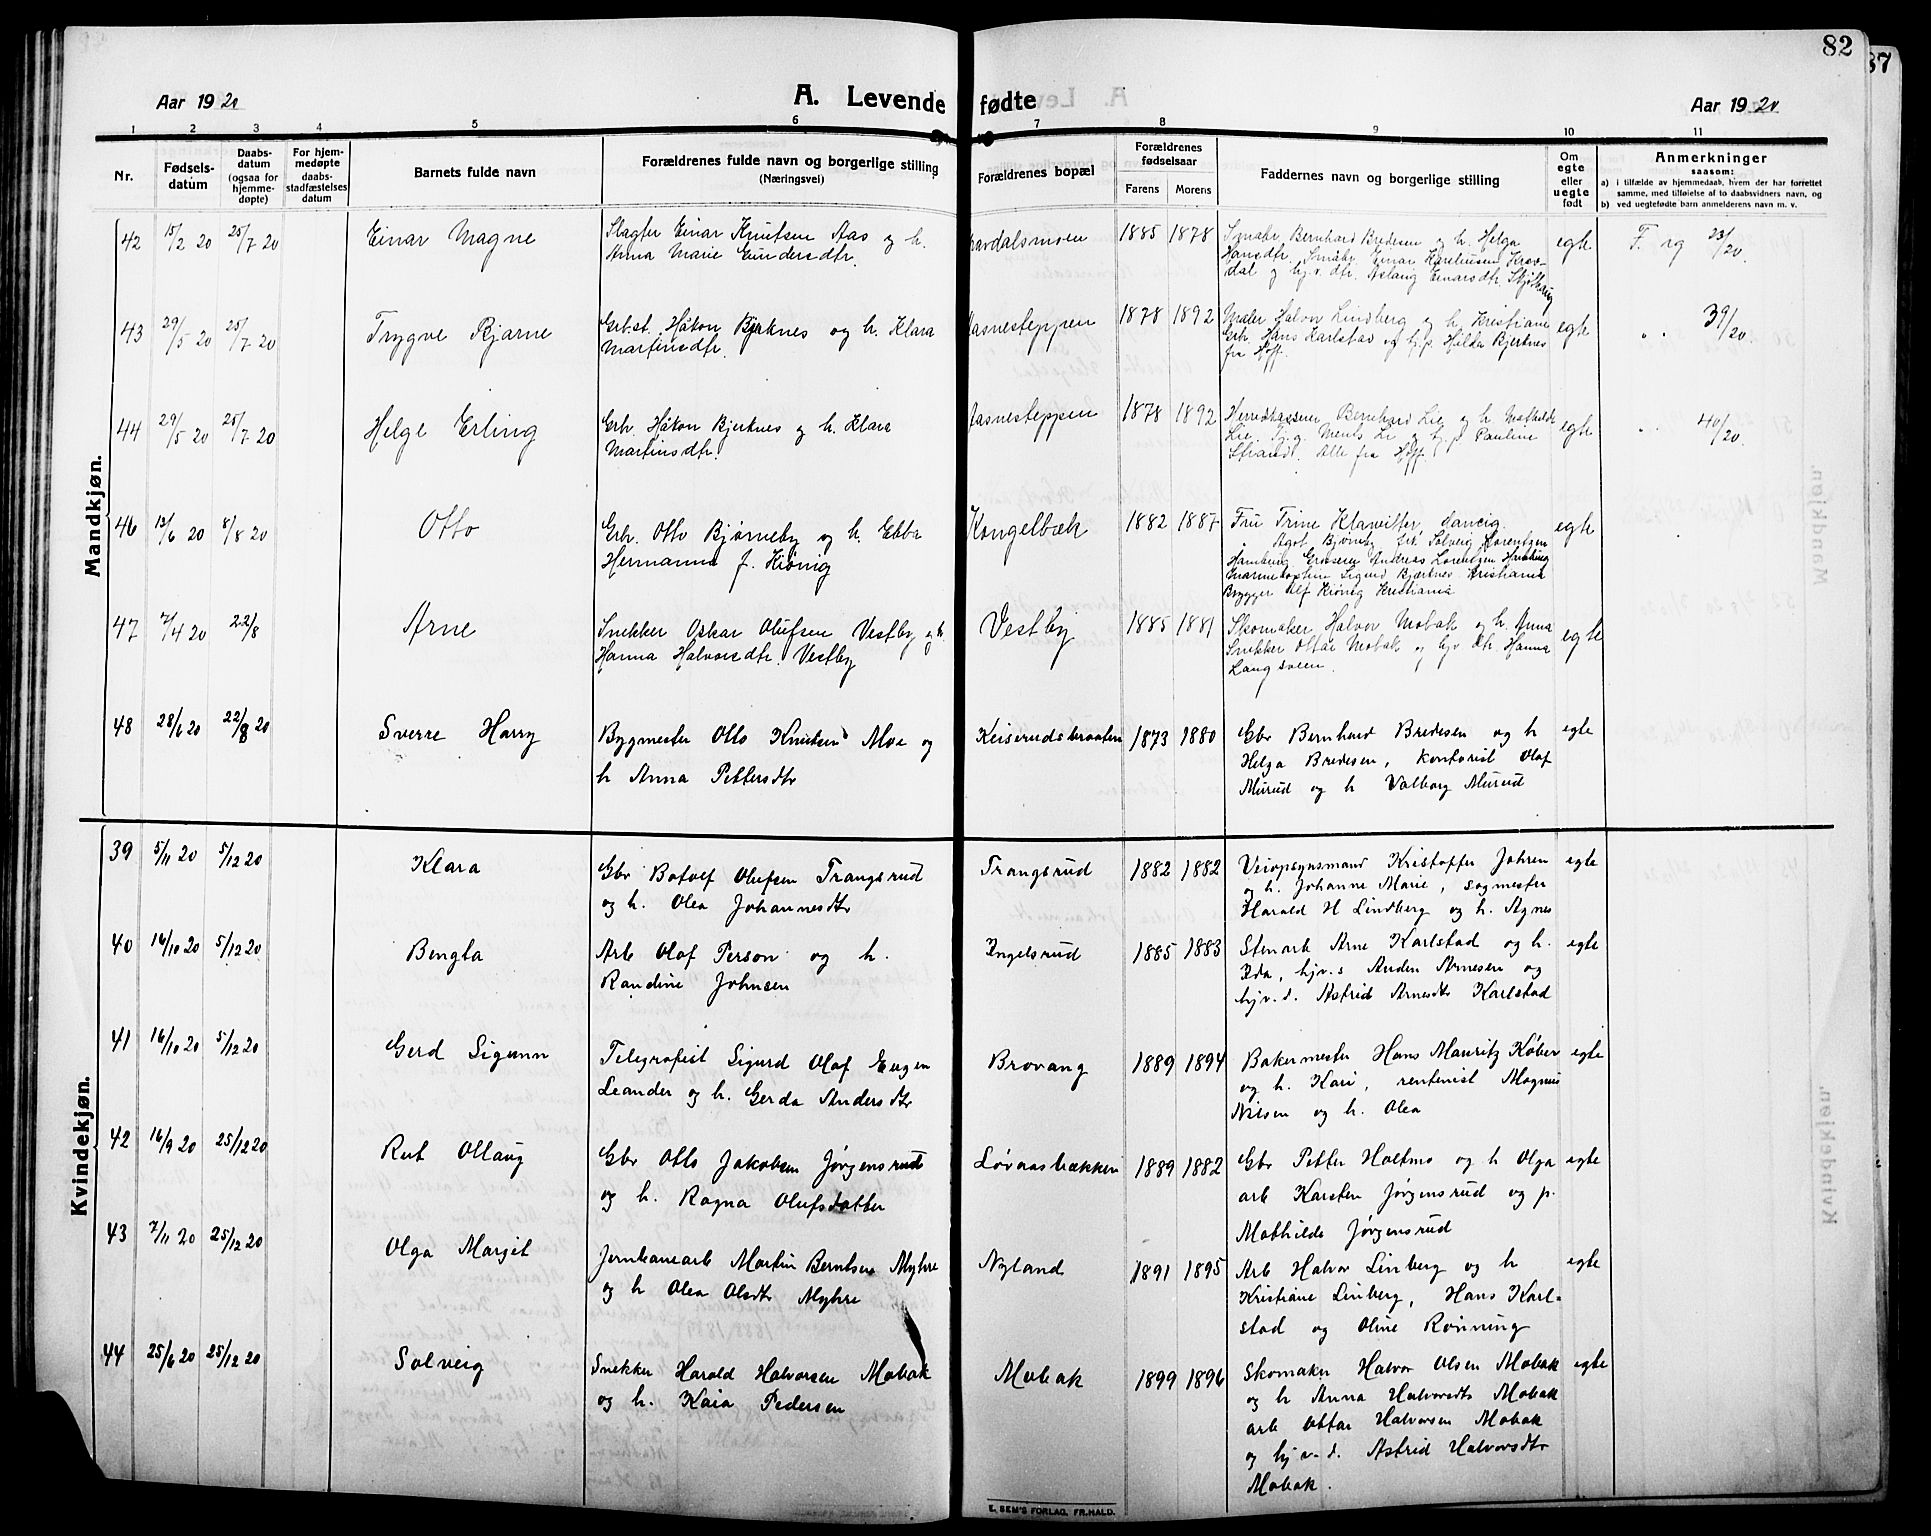 82
37
Aar 1920
A. Levende fødte
Aar 1920
1 2 3 4 5 6 7 8 9 10 11
Nr.
Fødsels-
datum
Daabs-
datum
(ogsaa for
hjemme-
døpte)
For hjem-
medøpte
daabs-
stadfæstelses
datum
Barnets fulde navn
Forældrenes fulde navn og borgerlige stilling
(Næringsvei)
Forældrenes bopæl
Forældrenes
fødselsaar
Farens Morens
Faddernes navn og borgerlige stilling
Om
egte
eller
uegte
født
Anmerkninger
saasom:
a) i tilfælde av hjemmedaab, hvem der har forrettet
samme, med tilføielse af to daabsvidners navn, og
b) ved uegtefødte barn anmelderens navn m. v.
Mandkjøn.
42 15/2 20 25/7 20 Einar Magne
Slagter Einar Knutsen Aas og h.
Anna Marie Einarsdtr.
1885 1878
Bernhard Bredesen og h. Helga
Hansdtr.
dal og hj.v. dtr. Aslaug Einarsdtr.
egte F. rg 23/20.
43 29/5 20 25/7 20 Trygve Bjarne
Grb.st. Håkon Bjerknes og h. Klara
Martinsdtr.
asnesteppen 1878 1892
Maler Halvor Lindberg og h. Kristiane
Grb. Hans Karlstad og hj.p. Hulda Bjerknes
fra Hoff.
egte " " 39/20.
44 29/5 20 25/7 20 Helge Erling
Grb. Håkon Bjerknes og h. Klara
Martinsdtr.
asnesteppen 1878 1892
Herredskasserer Bernhard Lie og h. Mathilde
Lie. hj.g. og hj.p. Pauline
Strand. Alle fra Hoff.
egte " " 40/20.
46 13/6 20 8/8 20 Otto
Grb. Otto Bjørneby og h. Ebba
Hermanna f. Kiønig
Kongelbæk 1882 1887
Fru Trine Klawitter, Danzig.
" Agot Bjørneby frk. Solveig Lorentzen
Hamburg Andreas Lorentzen Hamburg
Sigurd Bjerknes Kristiania
Brygger Alf Kiønig Kristiania
egte
47 7/4 20 22/8 Arne
Snekker Oskar Olufsen Vestby og h.
Hanna Halvorsdtr. Vestby
Vestby 1885 1881
Skomaker Halvor Mobak og h. Anna
Snekker Ottar Mobak og hjv. dtr. Hanna
Langsveen.
egte
48 28/6 20 22/8 20 Sverre Harry
Bygmester Otto Knutsen Moe og
h Anna Pettersdtr
Keiserudsbraaten 1873 1880
Gbr Bernhard Bredesen og h
Helga Bredesen, kontorist Olaf
Murud og h Valborg Murud
egte
Kvindekjøn.
39 5/11 20 5/12 20 Klara
Gbr Botolf Olufsen Trangsrud
og h. Olea Johannesdtr
Trangsrud 1882 1882
Veiopsynsmand Kristoffer Johren
og h. Johanne Marie, sagmester
Harald H Lindberg og h. Agnes
egte
40 16/10 20 5/12 20 Bengta
Arb Olof Person og h.
Randine Johnsen
Ingelsrud 1885 1883
Stenarb Arne Karlstad og h.
Ida, hjv.s Anden Arnesen og
hjv.d. Astrid Arnesdtr Karlstad
egte
41 16/10 20 5/12 20 Gerd Sigunn
Telegrafist Sigurd Olaf Eugen
Leander og h. Gerda Andersdtr
Brovang 1889 1894
Bakermester Hans Mauritz Køber
og h. Kari, rentenist Magnus
Nilsen og h. Olea
egte
42 16/9 20 25/12 20 Rut Ollaug
Gbr Otto Jakobsen Jørgensrud
og h. Ragna Olufsdatter
Løvaasbækken 1889 1882
Gbr Petter Holtmo og h Olga
arb Karsten Jørgensrud og p.
Mathilde Jørgensrud
egte
43 7/11 20 25/12 20 Olga Margit
Jernbanearb Martin Berntsen Myhre
og h Olea Olsdtr Myhre
Nyland 1891 1895
Arb Halvor Linberg og h
Kristiane Linberg, Hans Karl-
stad og Oline Rønning
egte
44 25/6 20 25/12 20 Solveig
Snekker Harald Halvorsen Mobak
og h. Kaia Pedersen
Mobak 1899 1896
Skomaker Halvor Olsen Mobak
og h Anna Halvorsdtr Mobak
arb Ottar Halvorsen Mobak
og hj v.d. Astrid Halvorsdtr
Mobak.
egte
E. SEM'S FORLAG, FR.HALD.